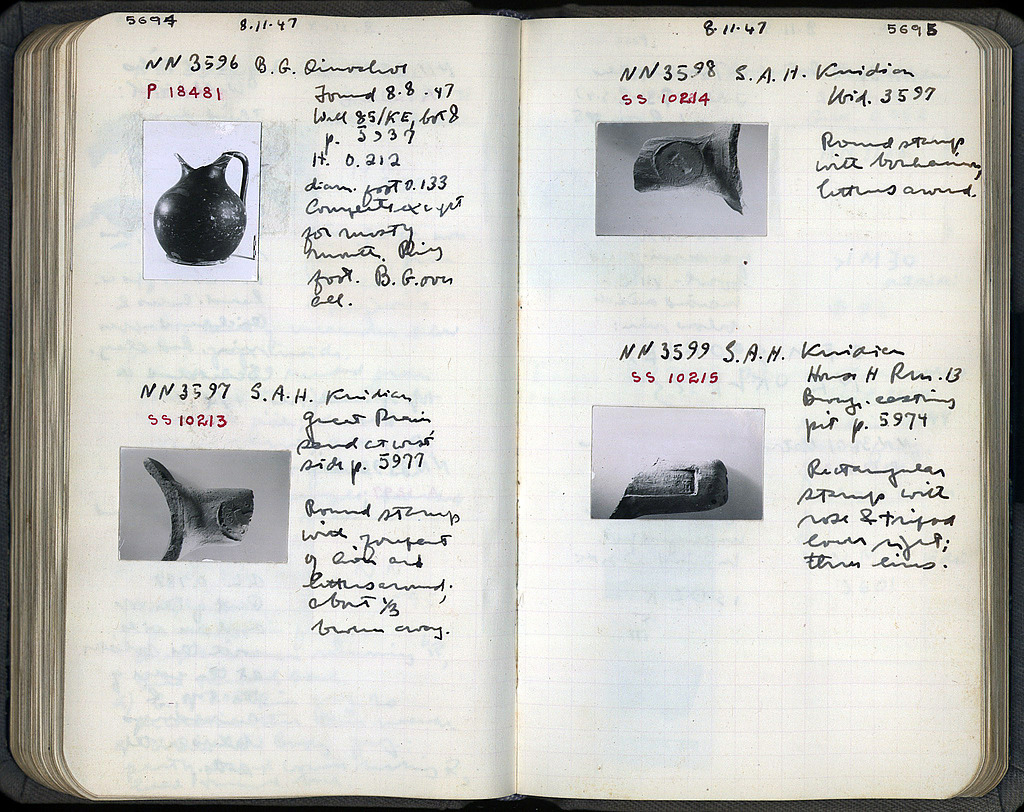 5694
8.11.47
NN 3596 B.G. Oinochoe
P 18481
Found 8.8.47
Well 85/KE, bot 8
p. 5937
H. 0.212
diam. foot 0.133
Complete except
for mostly
mouth. Ring
foot. B.G. over
all.
NN 3597 S.A.H. Knidian
SS 10213
Great Drain
sand at west
side p. 5977
Round stamp
with forepart
of lion and
letters around;
about 1/3
broken away.
8.11.47
5695
NN 3598 S.A.H. Knidian
SS 10214
Ibid. 3597
Round stamp
with
letters around.
NN 3599 S.A.H. Knidian
SS 10215
House H Rm. 13
Bronze casting
pit p. 5974
Rectangular
stamp with
rose & tripod
lower right;
three lines.